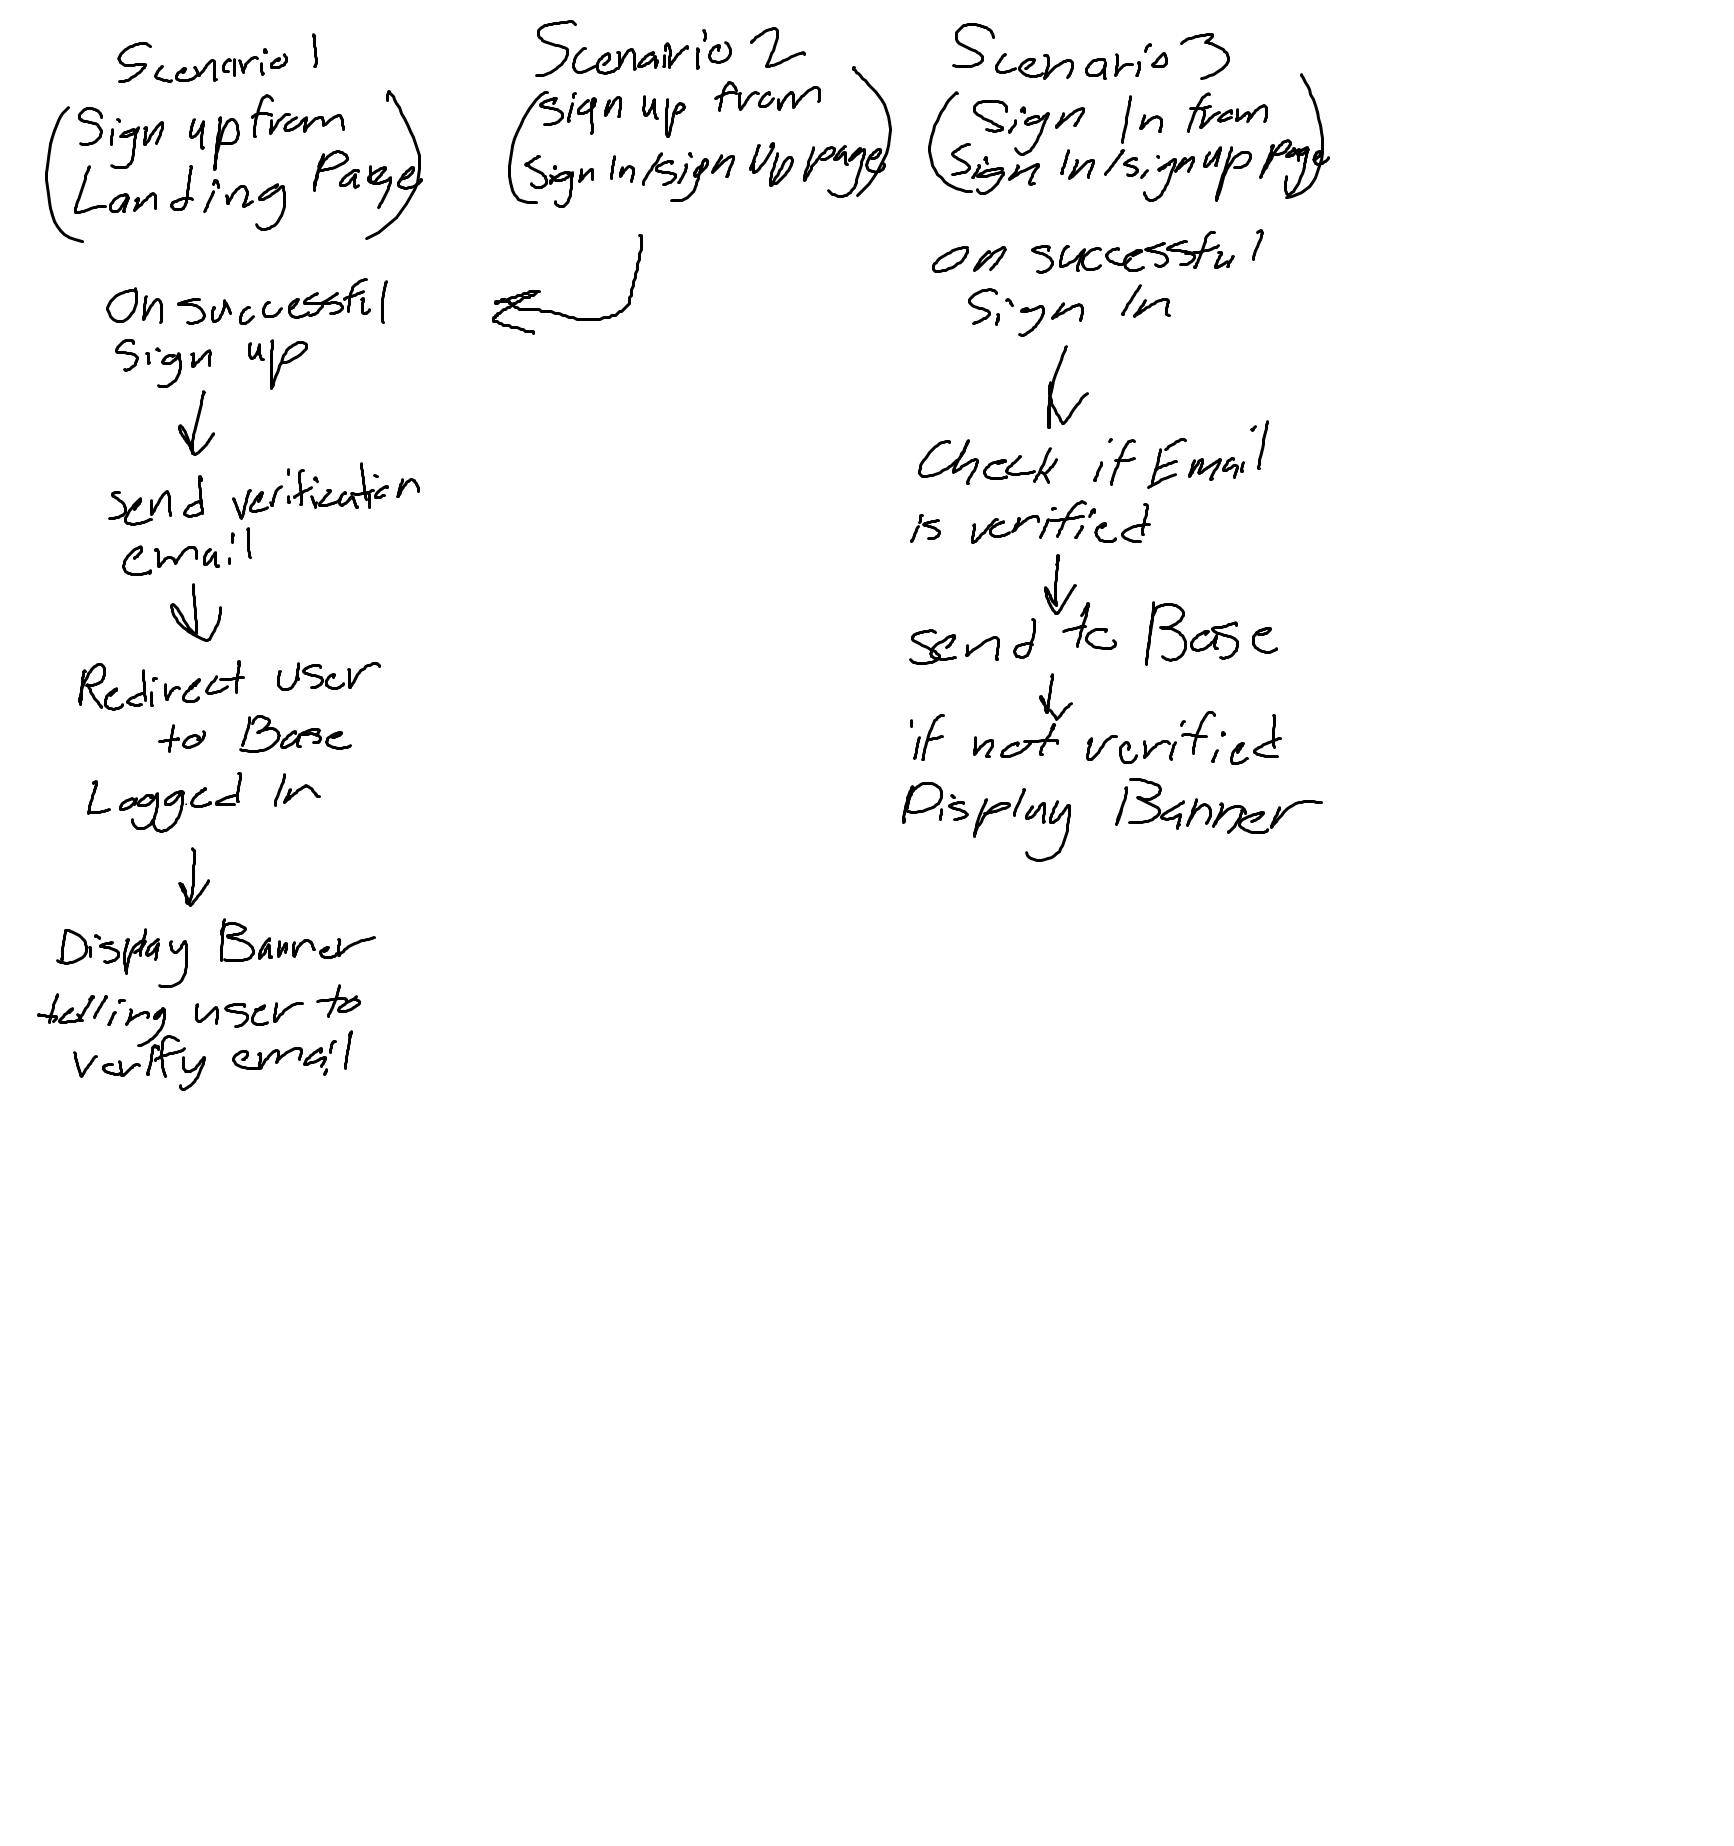 Scenario 1
(Sign up from
Landing Page)
On successful
Sign up
send verification
email
Redirect user
to Base
Logged In
Display Banner
telling user to
verify email
Scenairio 2
(sign up from
Sign In/sign Up page)
Scenario 3
(Sign In from
Sign In/signup page)
on successful
Sign In
Check if Email
is verified
send to Base
if not verified
Display Banner